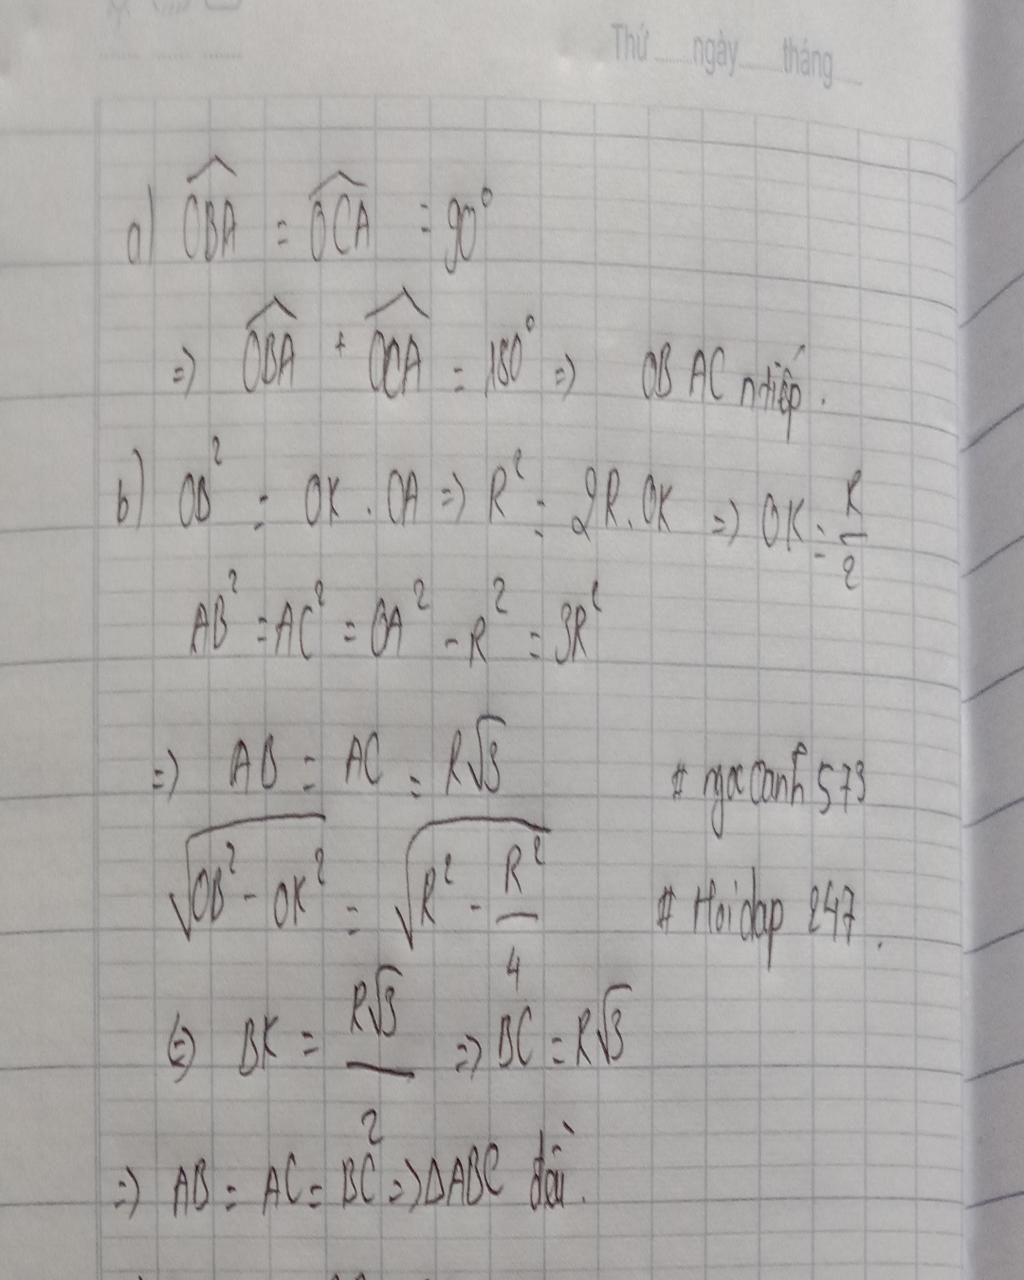 Thứ ..... ngày ..... tháng .....
a) \widehat{OBA} = \widehat{OCA} = 90°
=> \widehat{OBA} + \widehat{OCA} = 180° => OBAC ntiếp.
b) OB² = OK . OA => R² = 2R.OK => OK = R/2
AB² = AC² = OA² - R² = 3R²
=> AB = AC = R√3 # ngocoanh573
√(OB² - OK²) = √(R² - R²/4) # Hoidap 247.
(=) BK = R√3/2 => BC = R√3
=> AB = AC = BC => ΔABC đều.